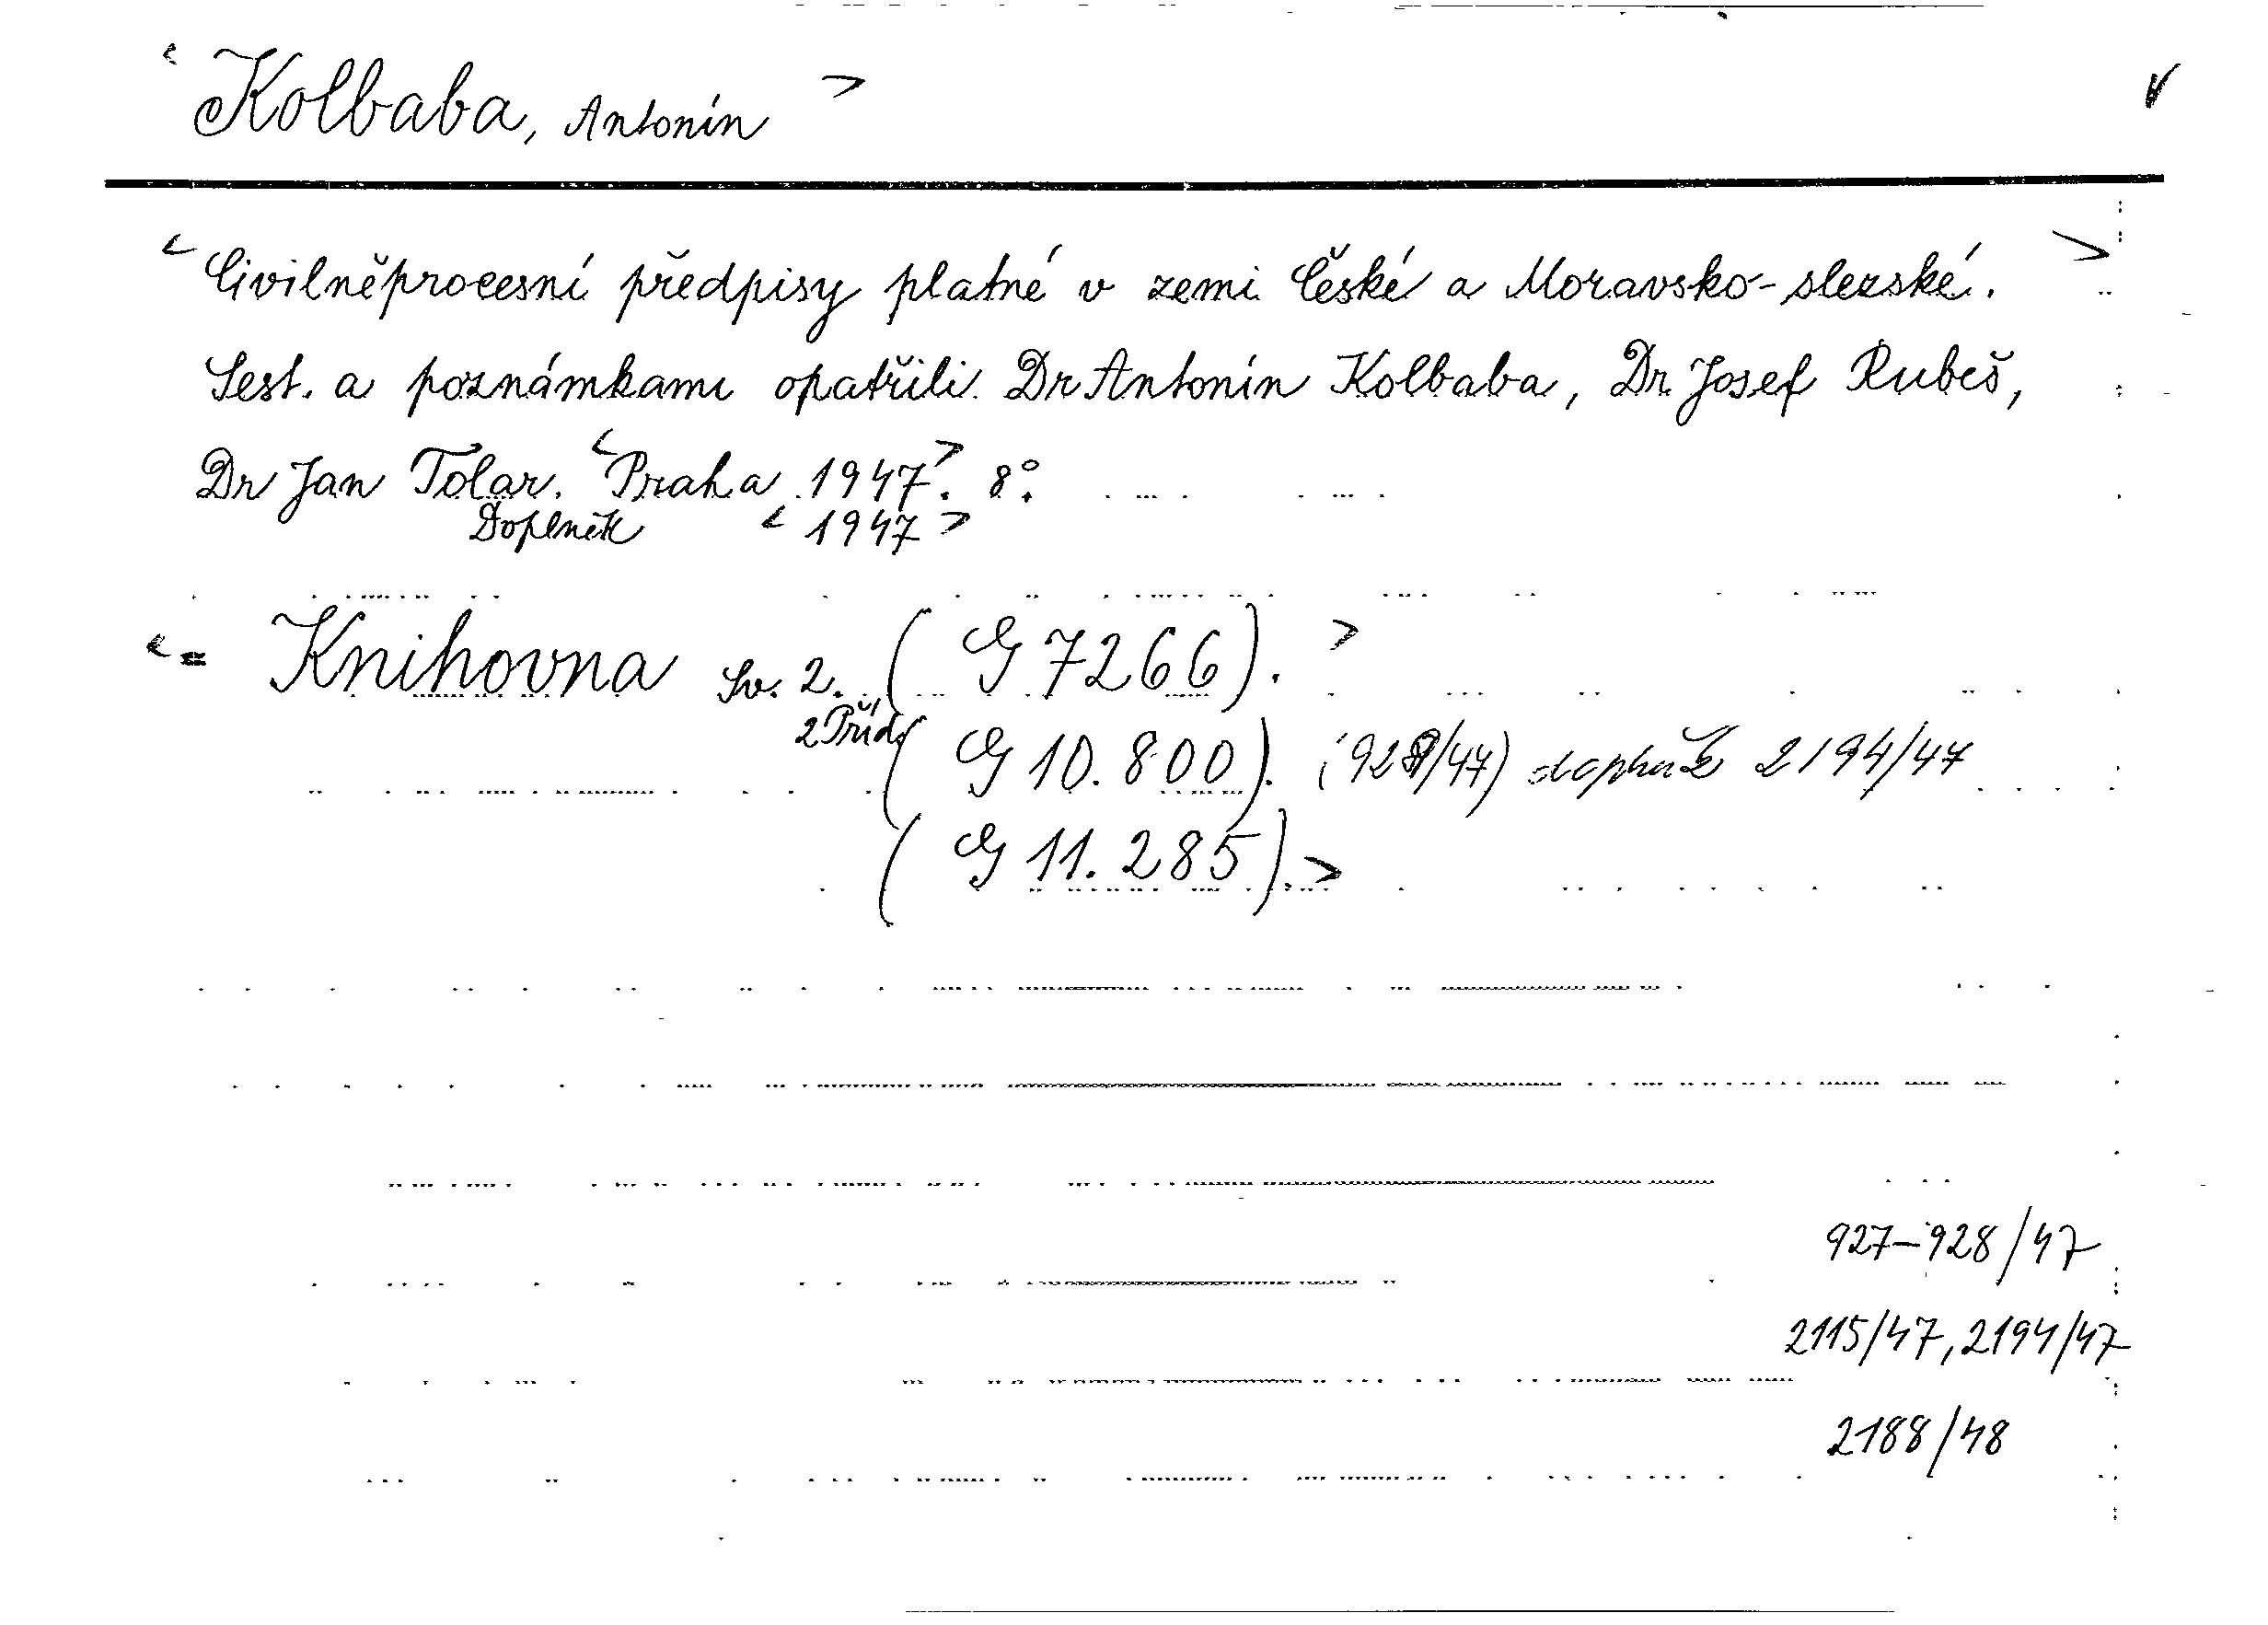 < Kolbaba, Antonín > v
< Civilněprocesní předpisy platné v zemi České a Moravsko-slezské. >
Sest. a poznámkami opatřili Dr Antonín Kolbaba, Dr Josef Rubeš,
Dr Jan Tolar. <Praha 1947>. 8°.
Doplněk < 1947 >
< = Knihovna Sv. 2. ( G 7266). >
2 Příd. ( G 10.800). (928/47) doplněk 2194/47
( G 11.285). >
927-928/47
2115/47, 2194/47
2188/48